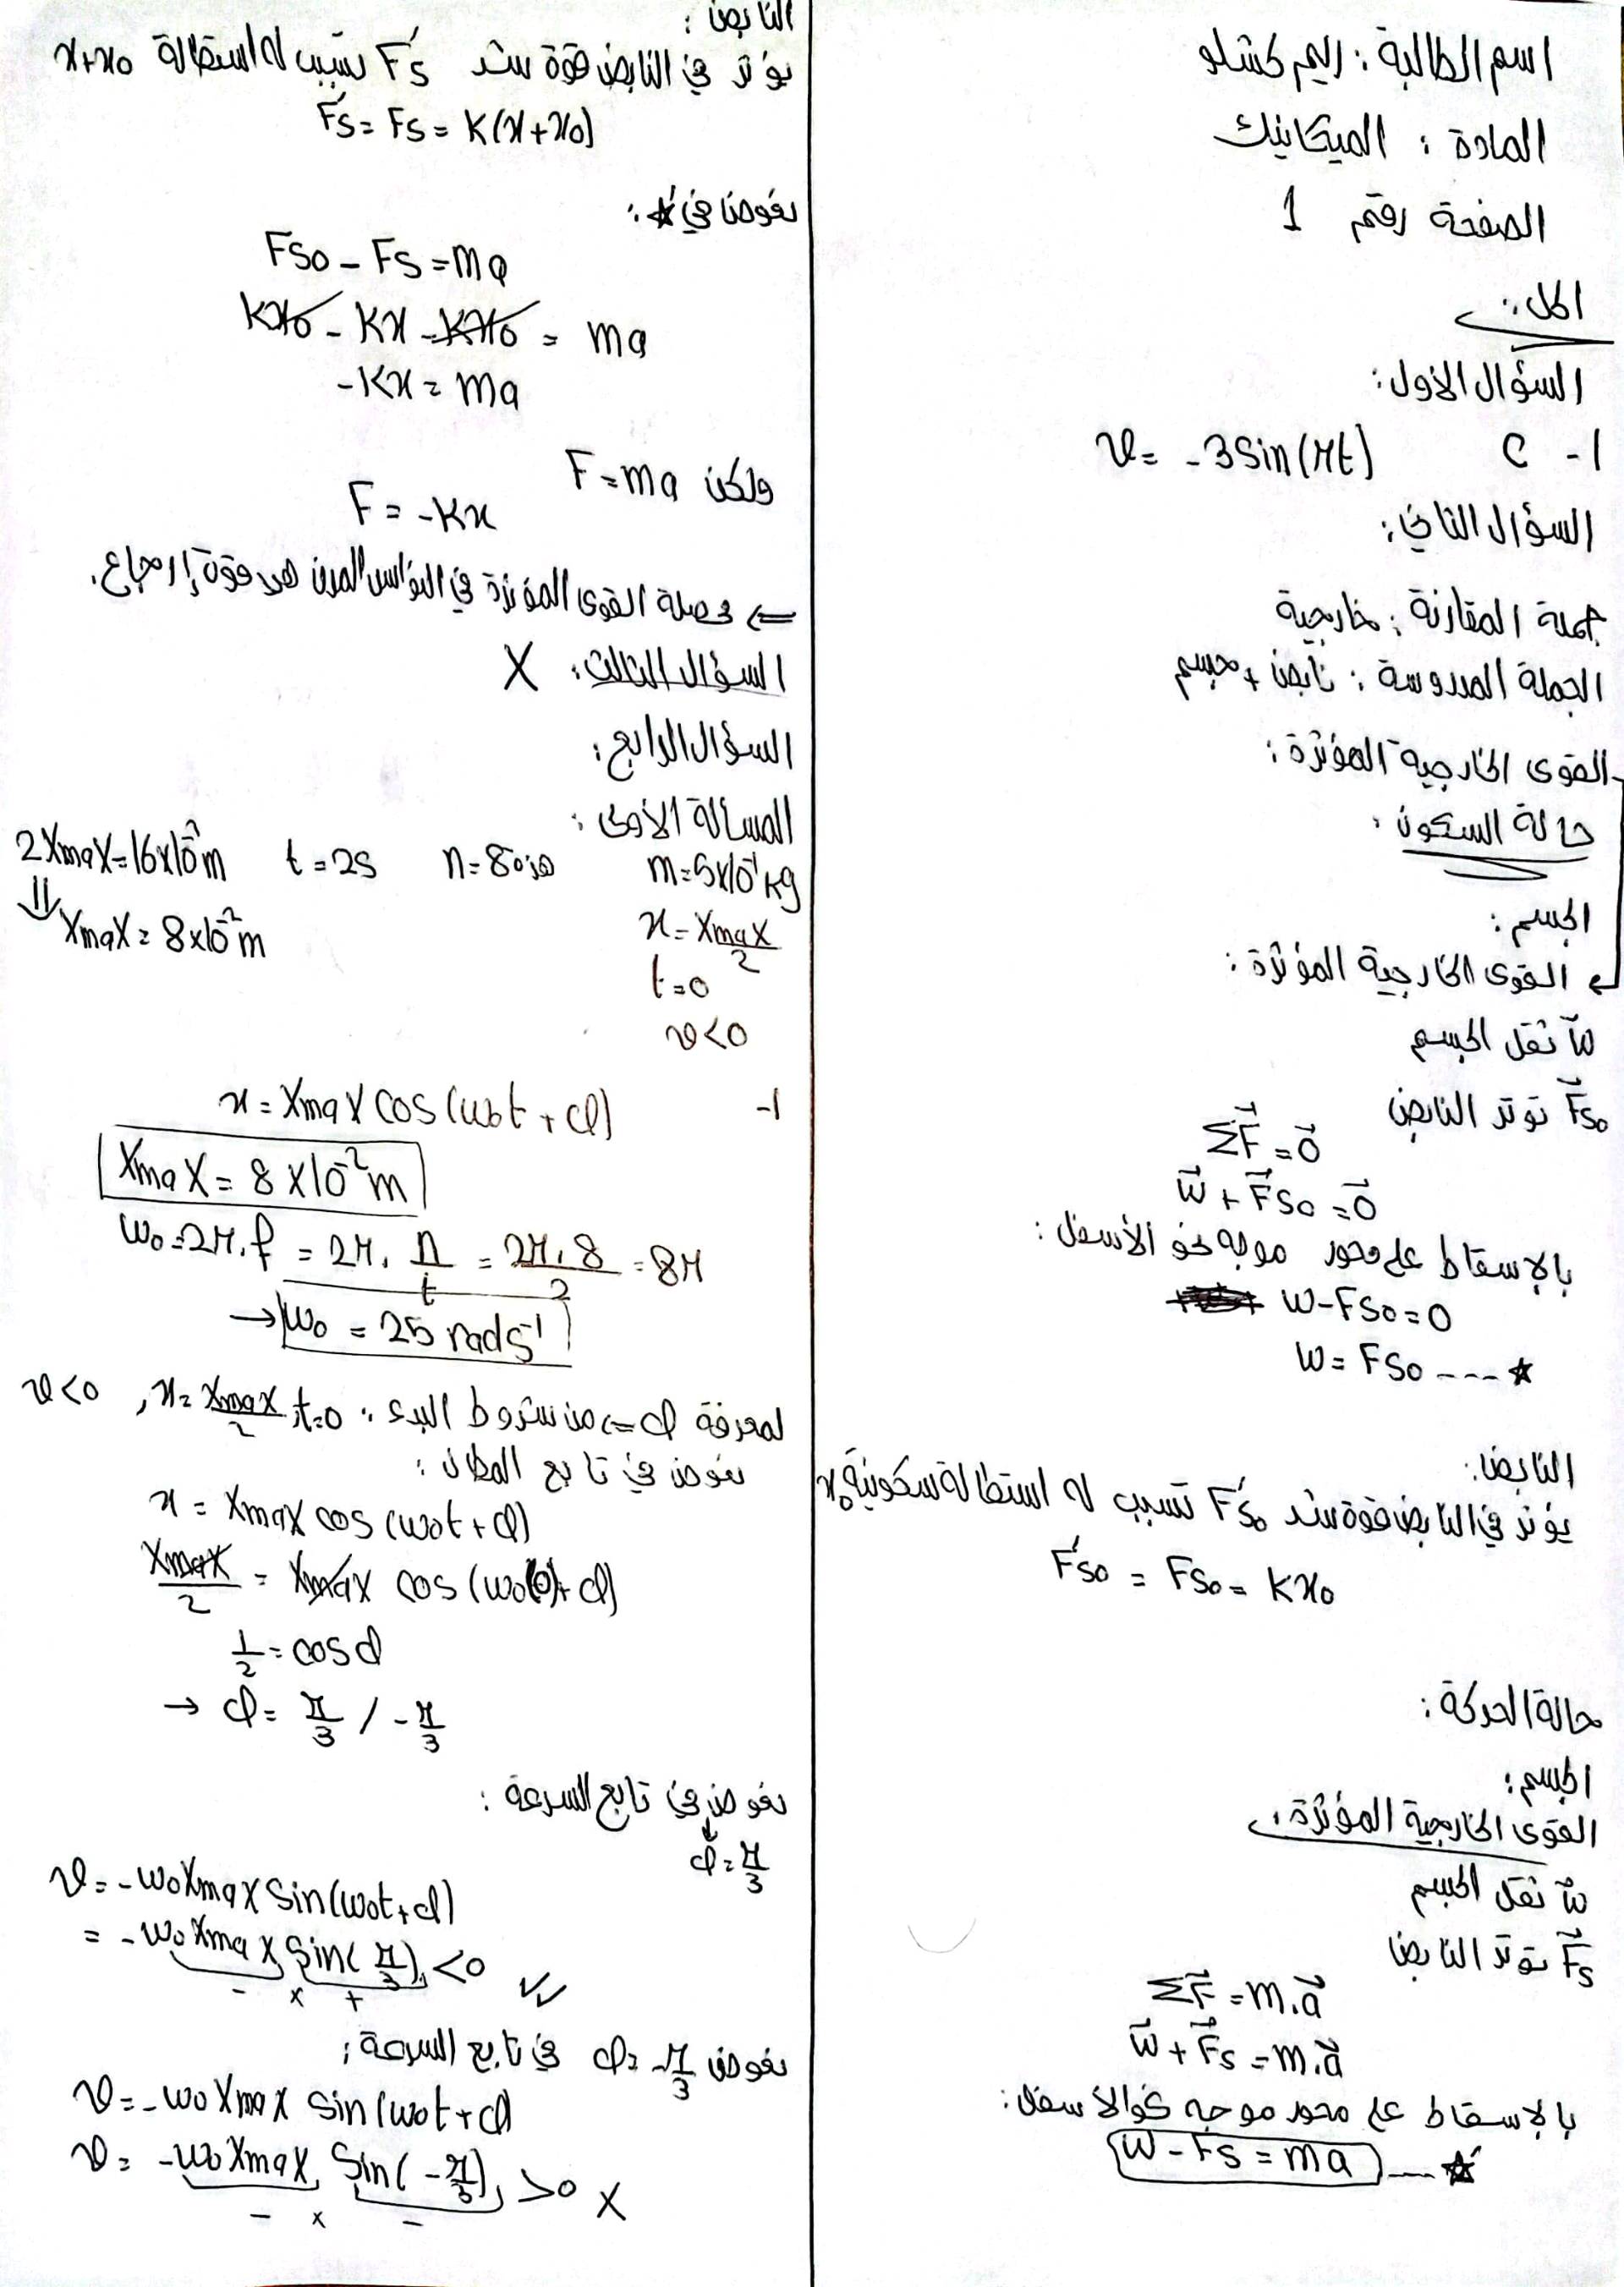 اسم الطالبة : ريم كشلو
المادة : الميكانيك
الصفحة رقم 1
الحل :
السؤال الأول :
1 - C v = -3 sin(πt)
السؤال الثاني :
جملة المقارنة : خارجية
الجملة المدروسة : نابض + جسم
القوى الخارجية المؤثرة :
حالة السكون :
الجسم :
القوى الخارجية المؤثرة :
w ثقل الجسم
Fs0 توتر النابض
ΣF = 0
w + Fs0 = 0
بالإسقاط على محور موجه نحو الأسفل :
w - Fs0 = 0
w = Fs0 ---- ★
النابض :
يؤثر في النابض قوة شد F's0 تسبب له استطالة سكونية x0
F's0 = Fs0 = kx0
حالة الحركة :
الجسم :
القوى الخارجية المؤثرة :
w ثقل الجسم
Fs توتر النابض
ΣF = m.a
w + Fs = m.a
بالإسقاط على محور موجه نحو الأسفل :
w - Fs = ma ---- ★'
النابض :
يؤثر في النابض قوة شد F's تسبب له استطالة x+x0
F's = Fs = k(x+x0)
نعوض في ★' :
Fs0 - Fs = ma
kx0 - kx - kx0 = ma
-kx = ma
ولكن F = ma
F = -kx
<= محصلة القوى المؤثرة في النواس المرن هي قوة إرجاع.
السؤال الثالث : X
السؤال الرابع :
المسألة الأولى :
m = 5x10^-1 kg n = 8 هزة t = 2s 2Xmax = 16x10^-2 m
x = Xmax/2 ⇓ Xmax = 8x10^-2 m
t = 0
v < 0
1- x = Xmax cos(ω0t + φ)
Xmax = 8x10^-2 m
ω0 = 2π.f = 2π. n/t = 2π.8/2 = 8π
→ ω0 = 25 rad s^-1
لمعرفة φ <= من شروط البدء : t=0, x = Xmax/2, v<0
نعوض في تابع المطال :
x = Xmax cos(ω0t + φ)
Xmax/2 = Xmax cos(ω0(0) + φ)
1/2 = cos φ
→ φ = π/3 / -π/3
نعوض في تابع السرعة :
↓ φ = π/3
v = -ω0Xmax sin(ω0t + φ)
= -ω0Xmax sin(π/3) < 0 ✓✓
- x +
نعوض φ = -π/3 في تابع السرعة :
v = -ω0Xmax sin(ω0t + φ)
v = -ω0Xmax sin(-π/3) > 0 X
- x -